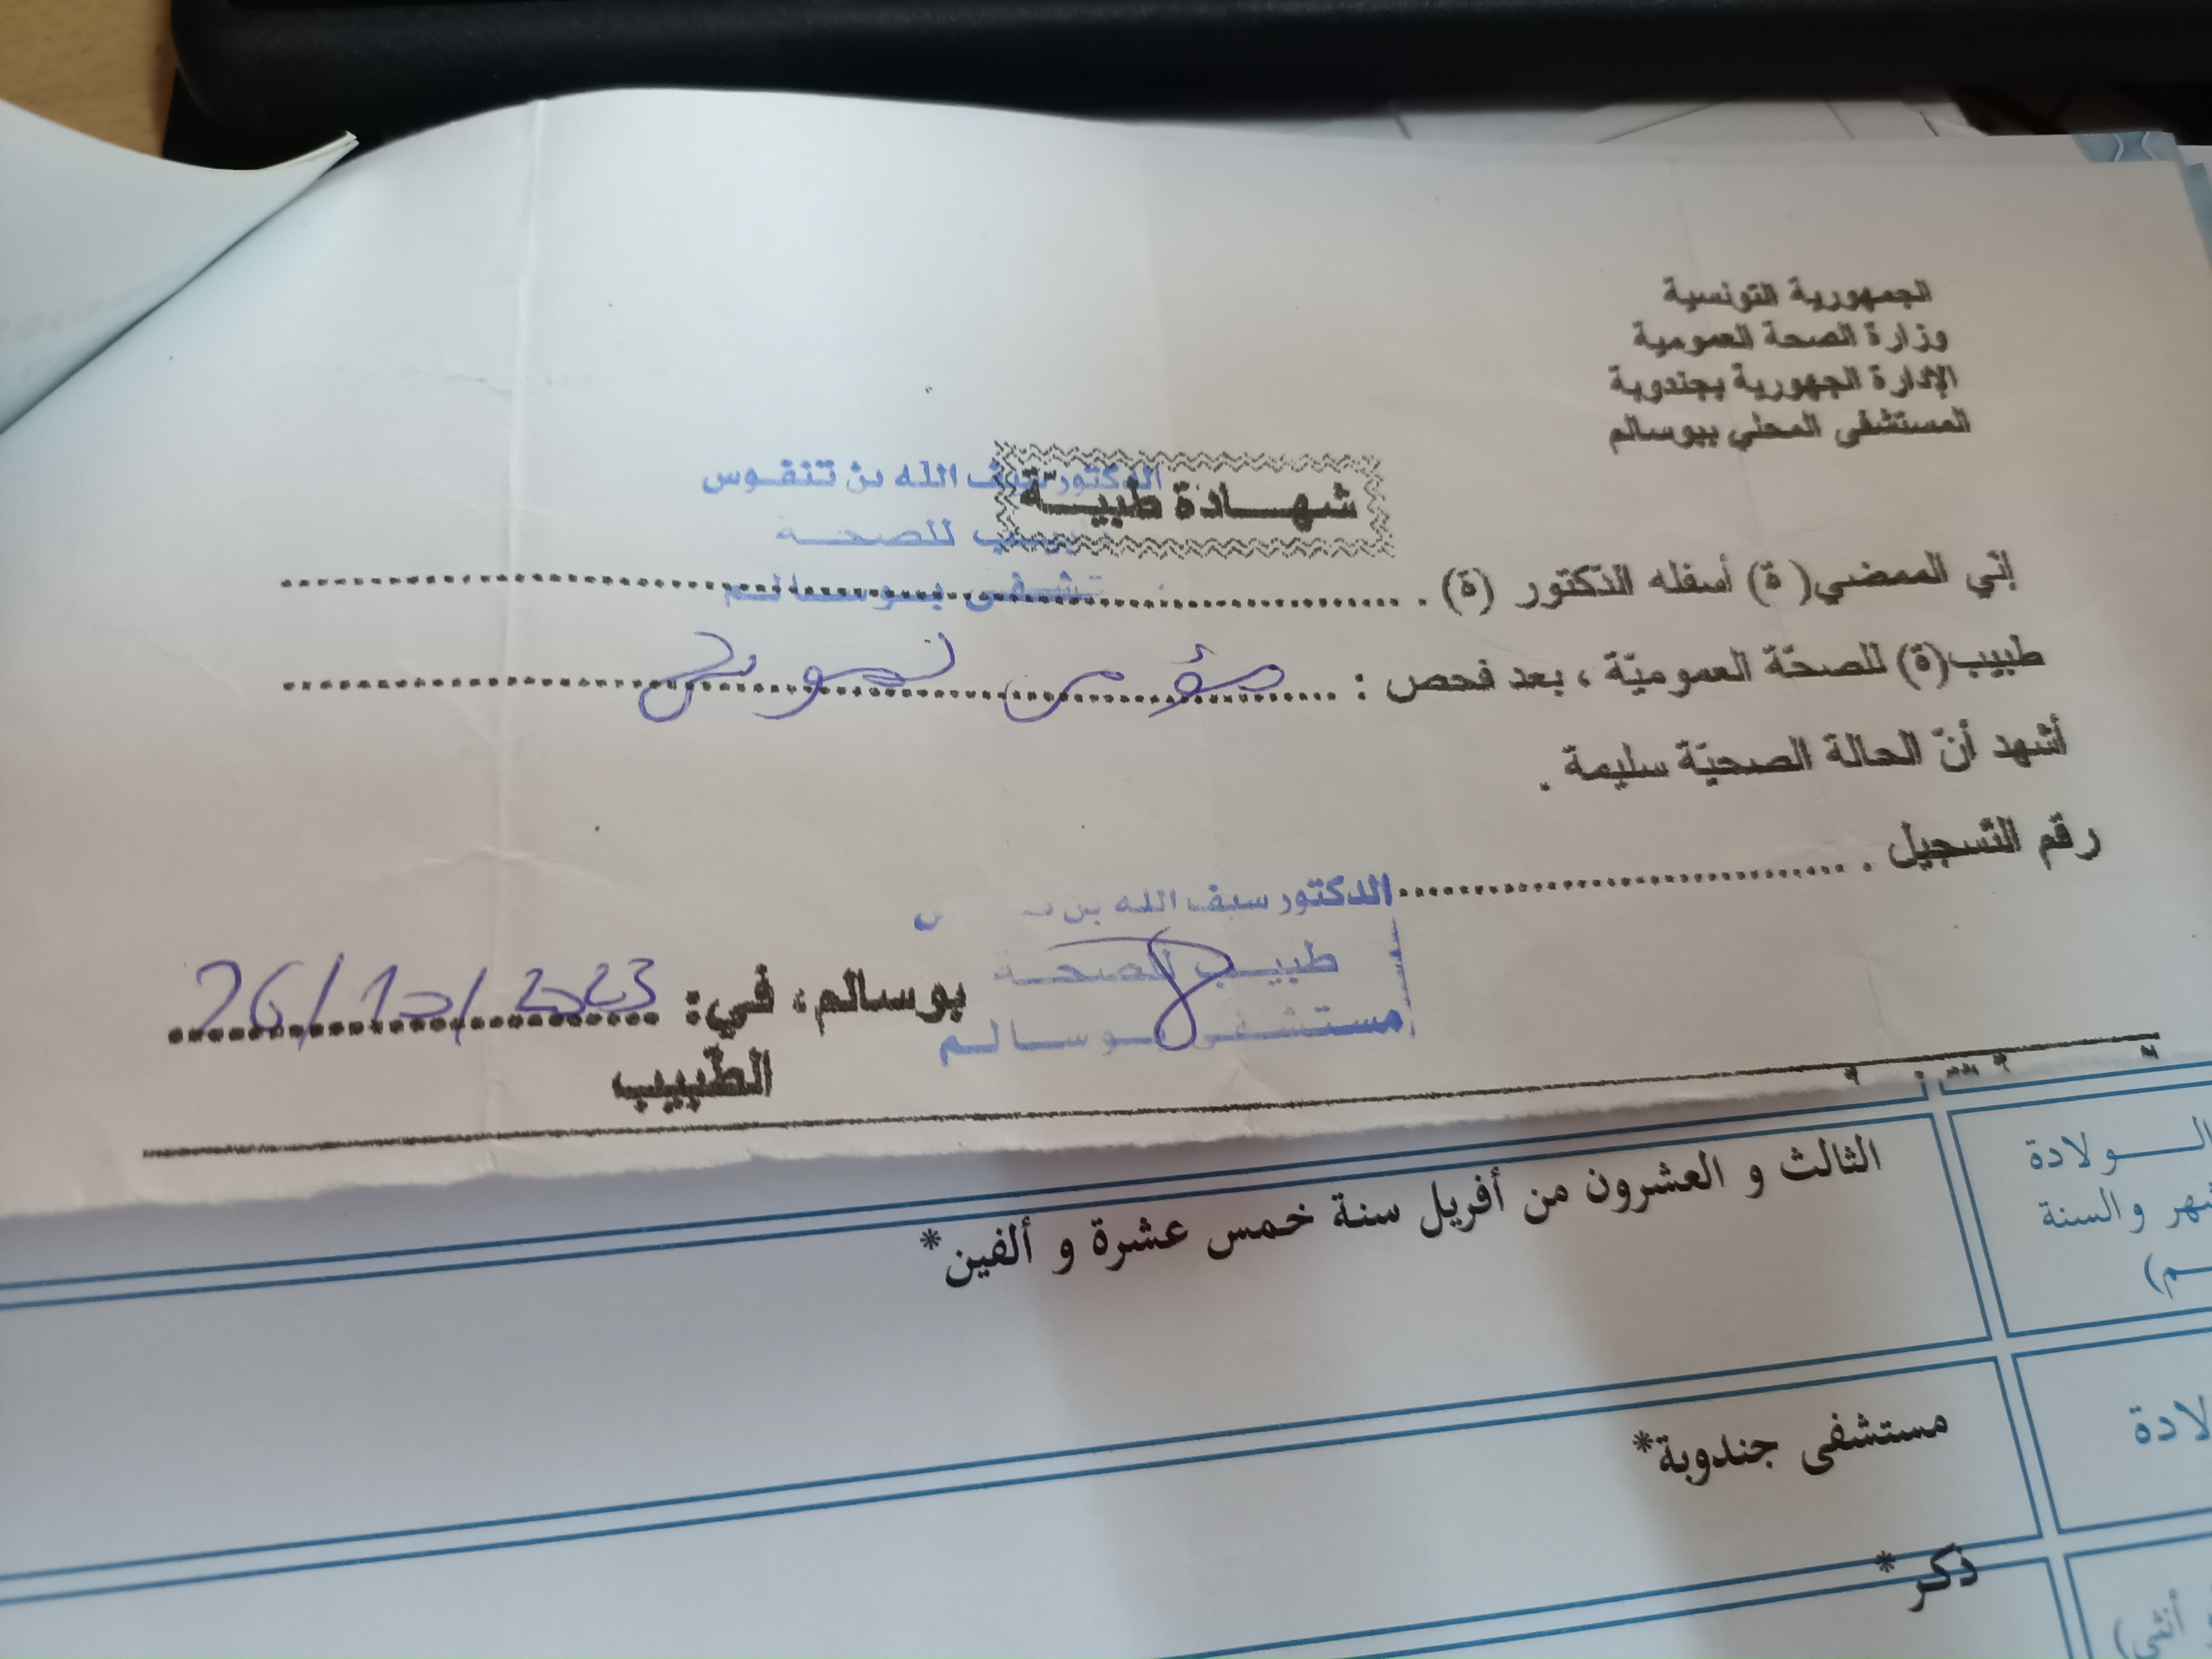 الجمهورية التونسية
وزارة الصحة العمومية
الإدارة الجهورية بجندوبة
المستشفى المحلي ببوسالم
شهــادة طبيــة
الدكتور سيف الله بن تنفوس
للصحـة
بـوسـالـم
إنّي الممضي(ة) أسفله الدّكتور (ة) .
طبيب(ة) للصحّة العموميّة ، بعد فحص :
مؤمن
أشهد أنّ الحالة الصحيّة سليمة .
رقم التّسجيل .
الدكتور سيف الله بن
طبيـب للصحـة
مستشفى بـوسـالـم
بوسالم، في: 26/10/2023
الطّبيب
الـــولادة
والسنة
الثالث و العشرون من أفريل سنة خمس عشرة و ألفين*
مستشفى جندوبة*
ذكر*
أنثى)